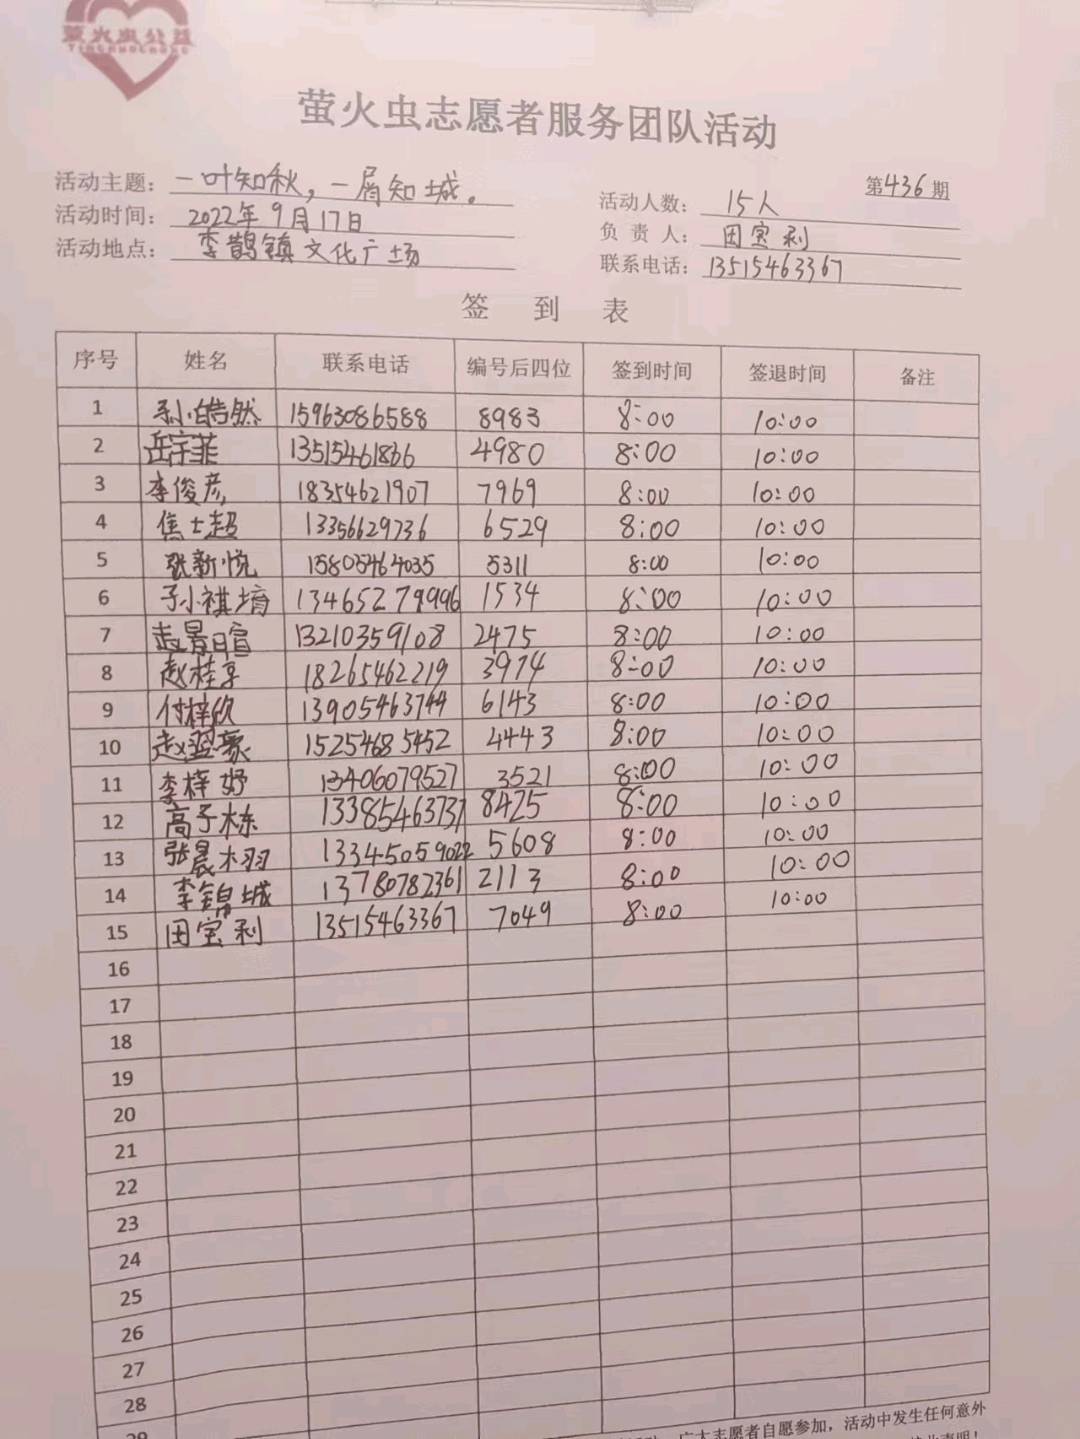 萤火虫公益
YINGHUOCHONG
萤火虫志愿者服务团队活动
第436期
活动主题：一叶知秋，一屑知城。
活动人数：15人
活动时间：2022年9月17日
负责人：田宝利
活动地点：李鹊镇文化广场
联系电话：13515463367
签到表
序号 姓名 联系电话 编号后四位 签到时间 签退时间 备注
1 孙皓然 15963086588 8983 8:00 10:00
2 岳宇菲 13515461866 4980 8:00 10:00
3 李俊彦 18354621907 7969 8:00 10:00
4 焦士超 13356629736 6529 8:00 10:00
5 张新悦 15805464035 5311 8:00 10:00
6 孙祺堉 13465279996 1534 8:00 10:00
7 赵景暄 13210359108 2475 8:00 10:00
8 赵桂享 18265462219 3974 8:00 10:00
9 付梓欣 13905463744 6143 8:00 10:00
10 赵翌豪 15254685452 4443 8:00 10:00
11 李梓妤 13406079527 3521 8:00 10:00
12 高子栋 13385463737 8425 8:00 10:00
13 张晨栩 13345059022 5608 8:00 10:00
14 李锦城 13780782361 2113 8:00 10:00
15 田宝利 13515463367 7049 8:00 10:00
16
17
18
19
20
21
22
23
24
25
26
27
28
29
广大志愿者自愿参加，活动中发生任何意外
声明！